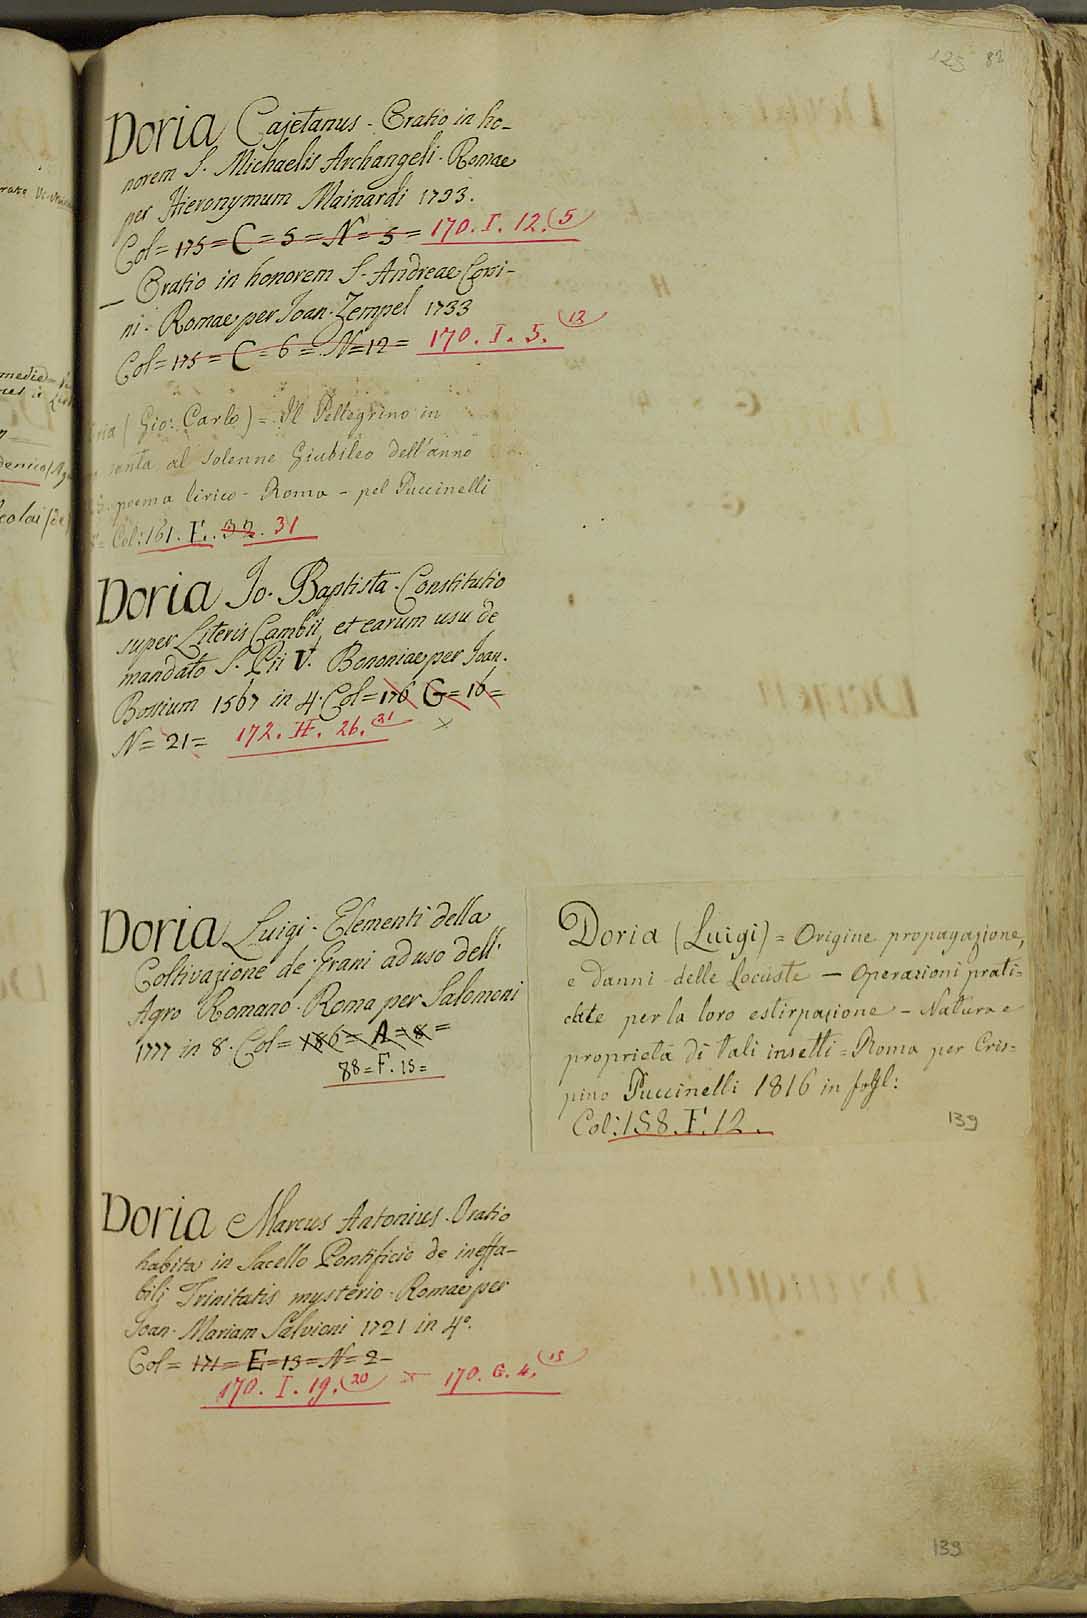 125 82
Doria Cajetanus - Oratio in ho-
norem S. Michaelis Archangeli. Romae
per Hieronymum Mainardi 1733.
Col= 175= C= 5= N= 5= 170. I. 12. (5
— Oratio in honorem S. Andreae Corsi-
ni. Romae per Joan. Zempel 1733
Col= 175= C= 6= N=12= 170. I. 5. (12
ria (Gio: Carlo) = Il Pellegrino in
santa al solenne Giubileo dell'anno
poema lirico - Roma - pel Puccinelli
= Col: 161. F. 32. 31
Doria Jo. Baptista. Constitutio
super Literis Cambii, et earum usu de
mandato S. Pii V. Bononiae per Joan.
Bossium 1567 in 4. Col= 176 G= 16=
N= 21= 172. H. 26. (31 ×
Doria Luigi. Elementi della
Coltivazione de' Grani ad uso dell'
Agro Romano. Roma per Salomoni
1777 in 8. Col= 186= A= 8=
88=F. 15=
Doria (Luigi) = Origine propagazione,
e danni delle Locuste — Operazioni prati=
cate per la loro estirpazione - Natura e
proprietà di tali insetti = Roma per Cris=
pino Puccinelli 1816 in fogl:
Col: 158. F. 12.
139
Doria Marcus Antonius. Oratio
habita in Sacello Pontificio de ineffa-
bili Trinitatis mysterio. Romae per
Joan. Mariam Salvioni 1721 in 4º.
Col= 171= E= 13= N= 2-
170. I. 19. (20 × 170. G. 4. (15
139